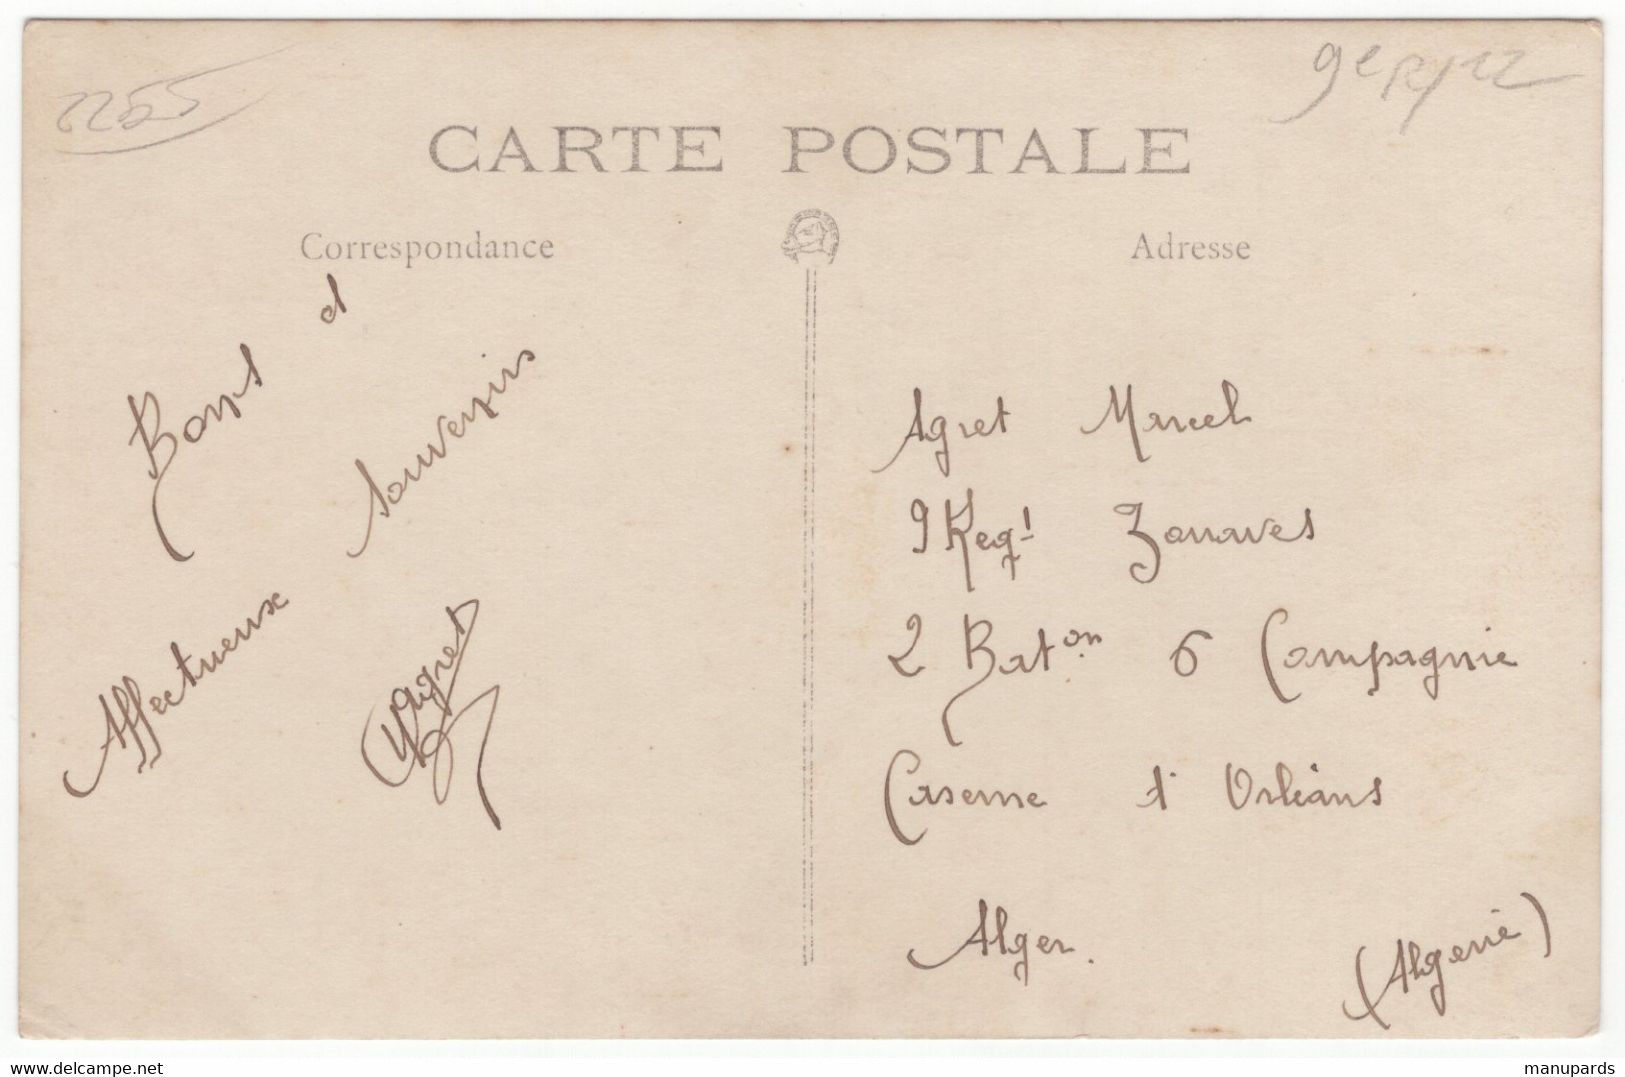 2255
CARTE POSTALE
Correspondance
Adresse
Bons et
Affectueux Souvenirs
Agret
Agret Marcel
9 Regt Zouaves
2 Baton 6 Compagnie
Caserne d'Orléans
Alger.
(Algerie)
www.delcampe.net
manupards